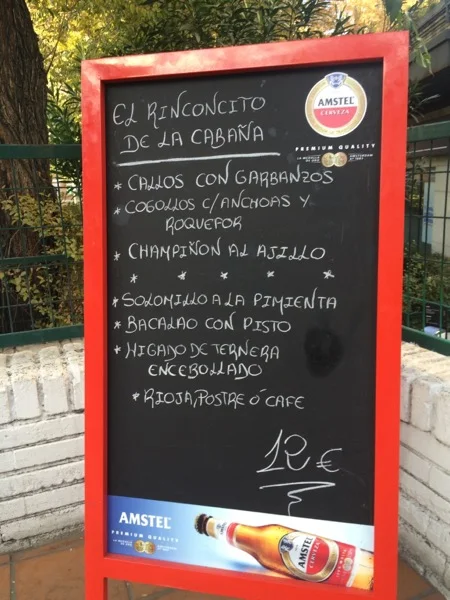 EL RINCONCITO
DE LA CABAÑA
AMSTEL
CERVEZA
PREMIUM QUALITY
* CALLOS CON GARBANZOS
* COGOLLOS C/ANCHOAS Y
ROQUEFOR
* CHAMPIÑON AL AJILLO
* * * * *
* SOLOMILLO A LA PIMIENTA
* BACALAO CON PISTO
* HIGADO DE TERNERA
ENCEBOLLADO
* RIOJA, POSTRE Ó CAFE
12 €
AMSTEL
PREMIUM QUALITY
AMSTEL